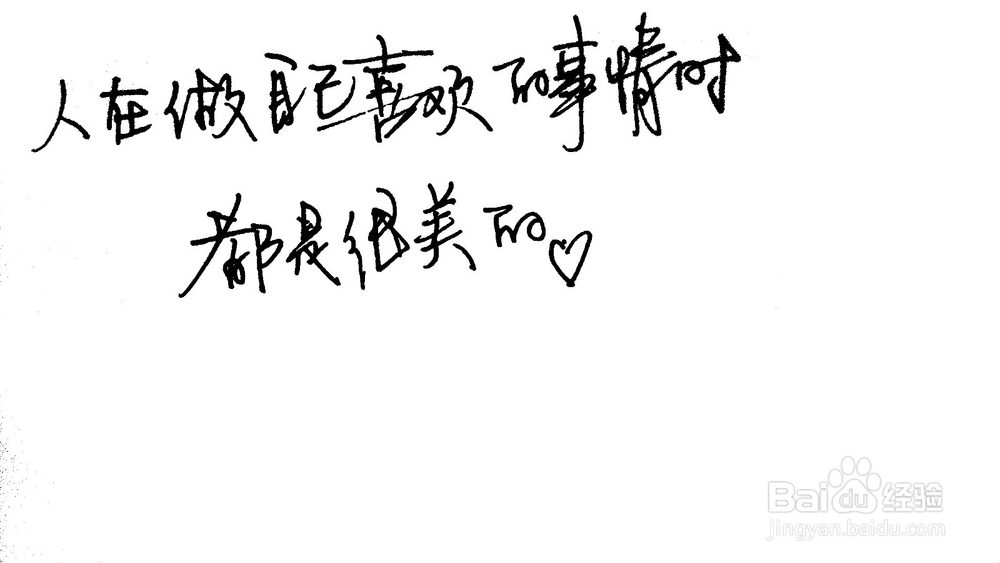 人在做自己喜欢的事情时
都是很美的♡
Baidu经验
jingyan.baidu.com